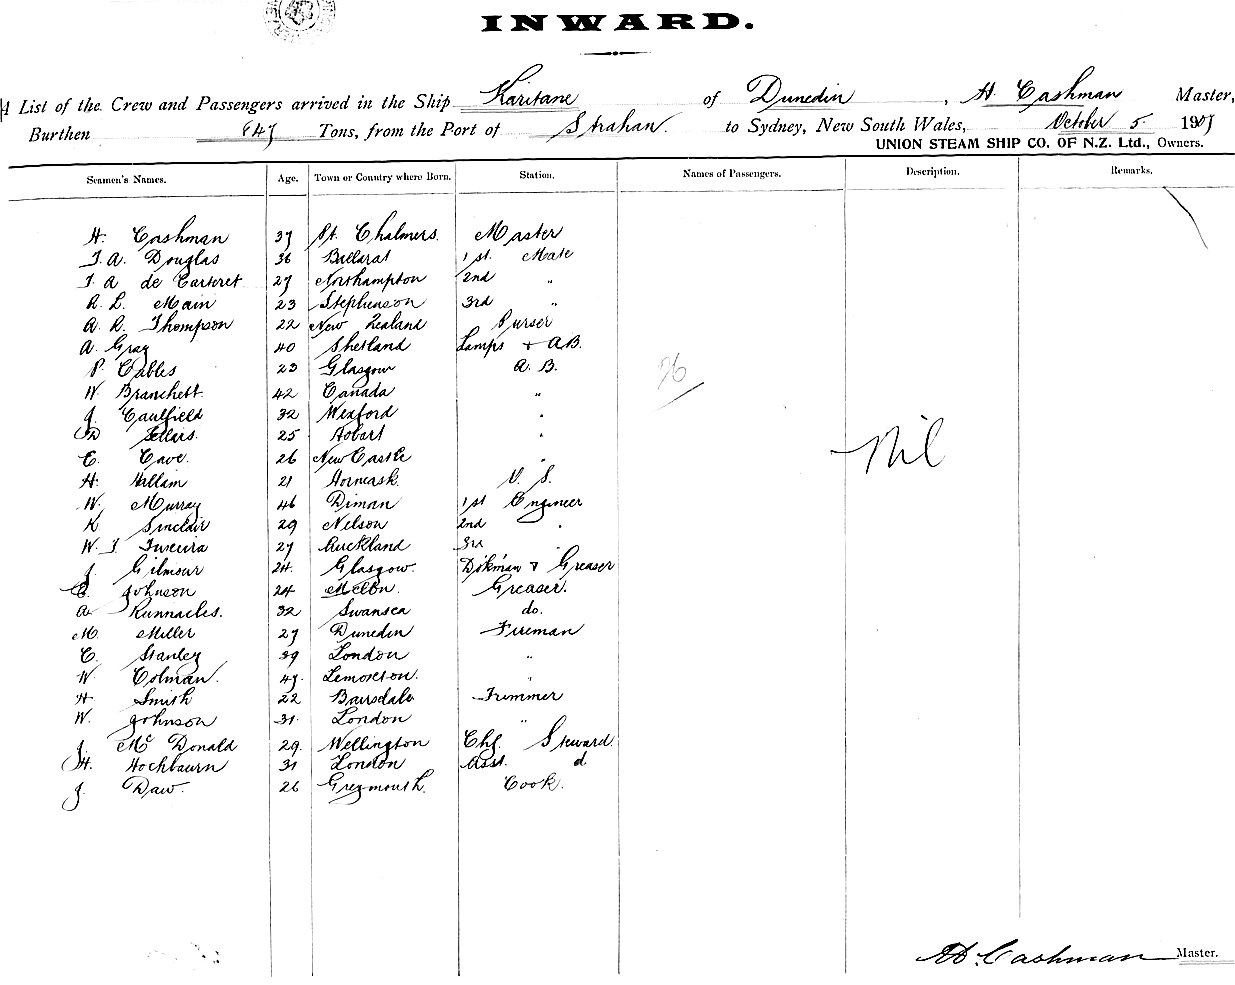 INWARD.
A List of the Crew and Passengers arrived in the Ship Karitane of Dunedin, H Cashman Master,
Burthen 847 Tons, from the Port of Strahan. to Sydney, New South Wales, October 5 1907
UNION STEAM SHIP CO. OF N.Z. Ltd., Owners.
Seamen's Names. Age. Town or Country where Born. Station. Names of Passengers. Description. Remarks.
H. Cashman 37 Pt. Chalmers. Master
J. A. Douglas 36 Ballarat 1st. Mate
J A de Carteret 27 Northampton 2nd "
A. L. Main 23 Stephenson 3rd "
A. R. Thompson 22 New Zealand Purser
A. Gray 40 Shetland Lamps + A.B.
P. Cables 23 Glasgow A. B.
W. Branchett. 42 Canada "
J. Caulfield 32 Wexford "
D Sellars. 25 Hobart "
E. Cave. 26 New Castle "
H. Hillam 21 O. S.
W. Murray 46 1st Engineer
K Sinclair 29 Nelson 2nd "
W. J. 27 Auckland 3rd
J. Gilmour 24. Glasgow. D'kman & Greaser
Johnson 24 Melbn. Greaser.
A. Runnacles. 32 Swansea do.
M. Miller 27 Dunedin Fireman
C. Stanley 39 London "
W. Colman. 47. "
H Smith 22 Bairsdale Trimmer
W. Johnson 31. London "
J. Mc Donald 29. Wellington Chf. Steward.
H. Hochbaurn 31 London Asst. d
J. Daw. 26 Greymouth. Cook.
26
Nil
H. Cashman Master.